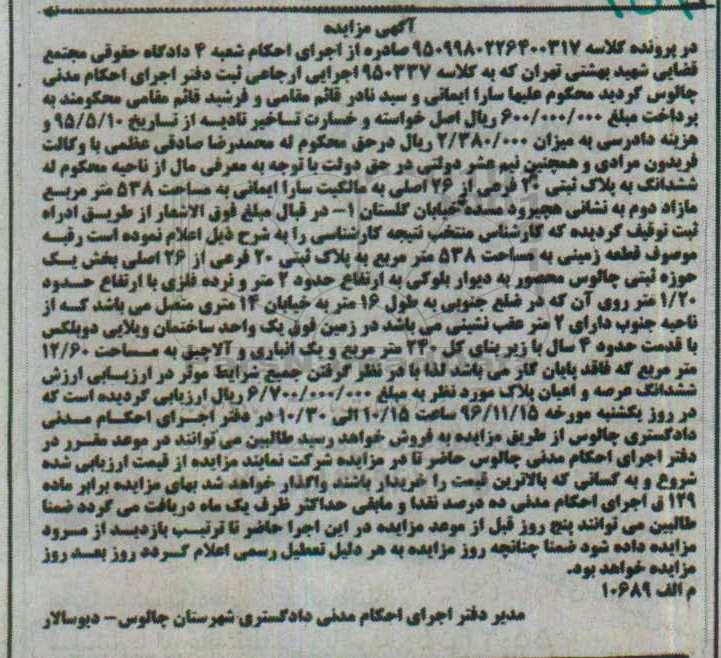 آگهی مزایده
در پرونده کلاسه ۹۵۰۹۹۸۰۲۲۶۴۰۰۳۱۷ صادره از اجرای احکام شعبه ۴ دادگاه حقوقی مجتمع
قضایی شهید بهشتی تهران که به کلاسه ۹۵۰۳۳۷ اجرایی ارجاعی ثبت دفتر اجرای احکام مدنی
چالوس گردید محکوم علیها سارا ایمانی و سید نادر قائم مقامی و فرشید قائم مقامی محکومند به
پرداخت مبلغ ۶۰۰/۰۰۰/۰۰۰ ریال اصل خواسته و خسارت تاخیر تادیسه از تساریخ ۹۵/۵/۱۰ و
هزینه دادرسی به میزان ۲/۳۸۰/۰۰۰ ریال درحق محکوم له محمدرضا صادقی عظمی با وکالت
فریدون مرادی و همچنین نیم عشر دولتی در حق دولت با توجه به معرفی مال از ناحیه محکوم له
ششدانگ به پلاک ثبتی ۲۰ فرعی از ۲۶ اصلی به مالکیت سارا ایمانی به مساحت ۵۳۸ متر مربع
مازاد دوم به نشانی هچیرود خیابان گلستان ۱- در قبال مبلغ فوق الاشعار از طریق اداره
ثبت توقیف گردیده که کارشناس منتخب نتیجه کارشناسی را به شرح ذیل اعلام نموده است رقبه
موصوف قطعه زمینی به مساحت ۵۳۸ متر مربع به پلاک ثبتی ۲۰ فرعی از ۲۶ اصلی بخش یک
حوزه ثبتی چالوس محصور به دیوار بلوکی به ارتفاع حدود ۲ متر و نرده فلزی با ارتفاع حدود
۱/۲۰ متر روی آن که در ضلع جنوبی به طول ۱۶ متر به خیابان ۱۴ متری متصل می باشد که از
ناحیه جنوب دارای ۲ متر عقب نشینی می باشد در زمین فوق یک واحد ساختمان ویلایی دوبلکس
با قدمت حدود ۴ سال با زیر بنای کل ۲۴۰ متر مربع و یک انباری و آلاچیق به مساحت ۱۲/۶۰
متر مربع که فاقد پایان کار می باشد لذا با در نظر گرفتن جمیع شرایط موثر در ارزیابی ارزش
ششدانگ عرصه و اعیان پلاک مورد نظر به مبلغ ۶/۷۰۰/۰۰۰/۰۰۰ ریال ارزیابی گردیده است که
در روز یکشنبه مورخه ۹۶/۱۱/۱۵ ساعت ۱۰/۱۵ الی ۱۰/۳۰ در دفتر اجرای احکام مدنی
دادگستری چالوس از طریق مزایده به فروش خواهد رسید طالبین می توانند در موعد مقرر در
دفتر اجرای احکام مدنی چالوس حاضر تا در مزایده شرکت نمایند مزایده از قیمت ارزیابی شده
شروع و به کسانی که بالاترین قیمت را خریدار باشند واگذار خواهد شد بهای مزایده برابر ماده
۱۲۹ ق اجرای احکام مدنی ده درصد نقدا و مابقی حداکثر ظرف یک ماه دریافت می گردد ضمنا
طالبین می توانند پنج روز قبل از موعد مزایده در این اجرا حاضر تا ترتیب بازدید از مورد
مزایده داده شود ضمنا چنانچه روز مزایده به هر دلیل تعطیل رسمی اعلام گردد روز بعد روز
مزایده خواهد بود.
م الف ۱۰۶۸۹
مدیر دفتر اجرای احکام مدنی دادگستری شهرستان چالوس- دیوسالار